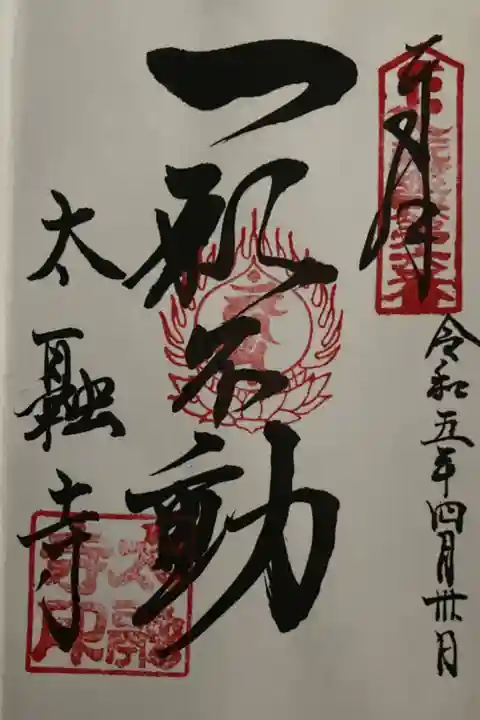 奉拝
令和五年四月卅日
一願不動
太融寺
太融寺印